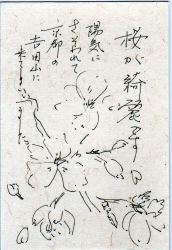 桜が綺麗です
陽気に
さそわれて
京都の
吉田山に
来ています